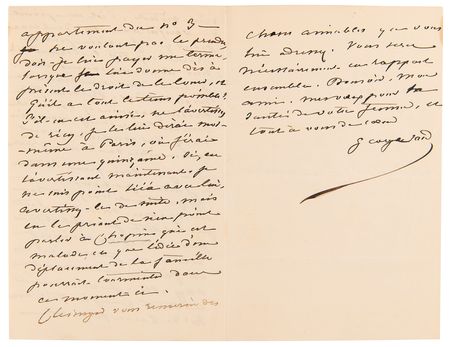 appartement du no 3
ne voulant pas le prendre
dois-je lui payer un terme
lorsque je lui donne dès à
présent le droit de le louer, et
qu'il a tout le tems possible?
S'il en est ainsi, ne l'avertissez
de rien, je le lui dirai moi-
même à Paris, où j'irai
dans une quinzaine. Si, en
l'avertissant maintenant, je
ne suis point liée avec lui,
avertissez-les de suite, mais
en le priant de n'en point
parler à Chopin qui est
malade et que l'idée d'un
déplacement de la famille
pourrait tourmenter dans
ce moment ci.
Clésinger vous remercie des
choses aimables que vous
lui adressez. Vous serez
nécessairement en rapport
ensemble. Bonsoir, mon
ami. mes vœux pour la
santé de votre femme, et
tout à vous de cœur
George Sand